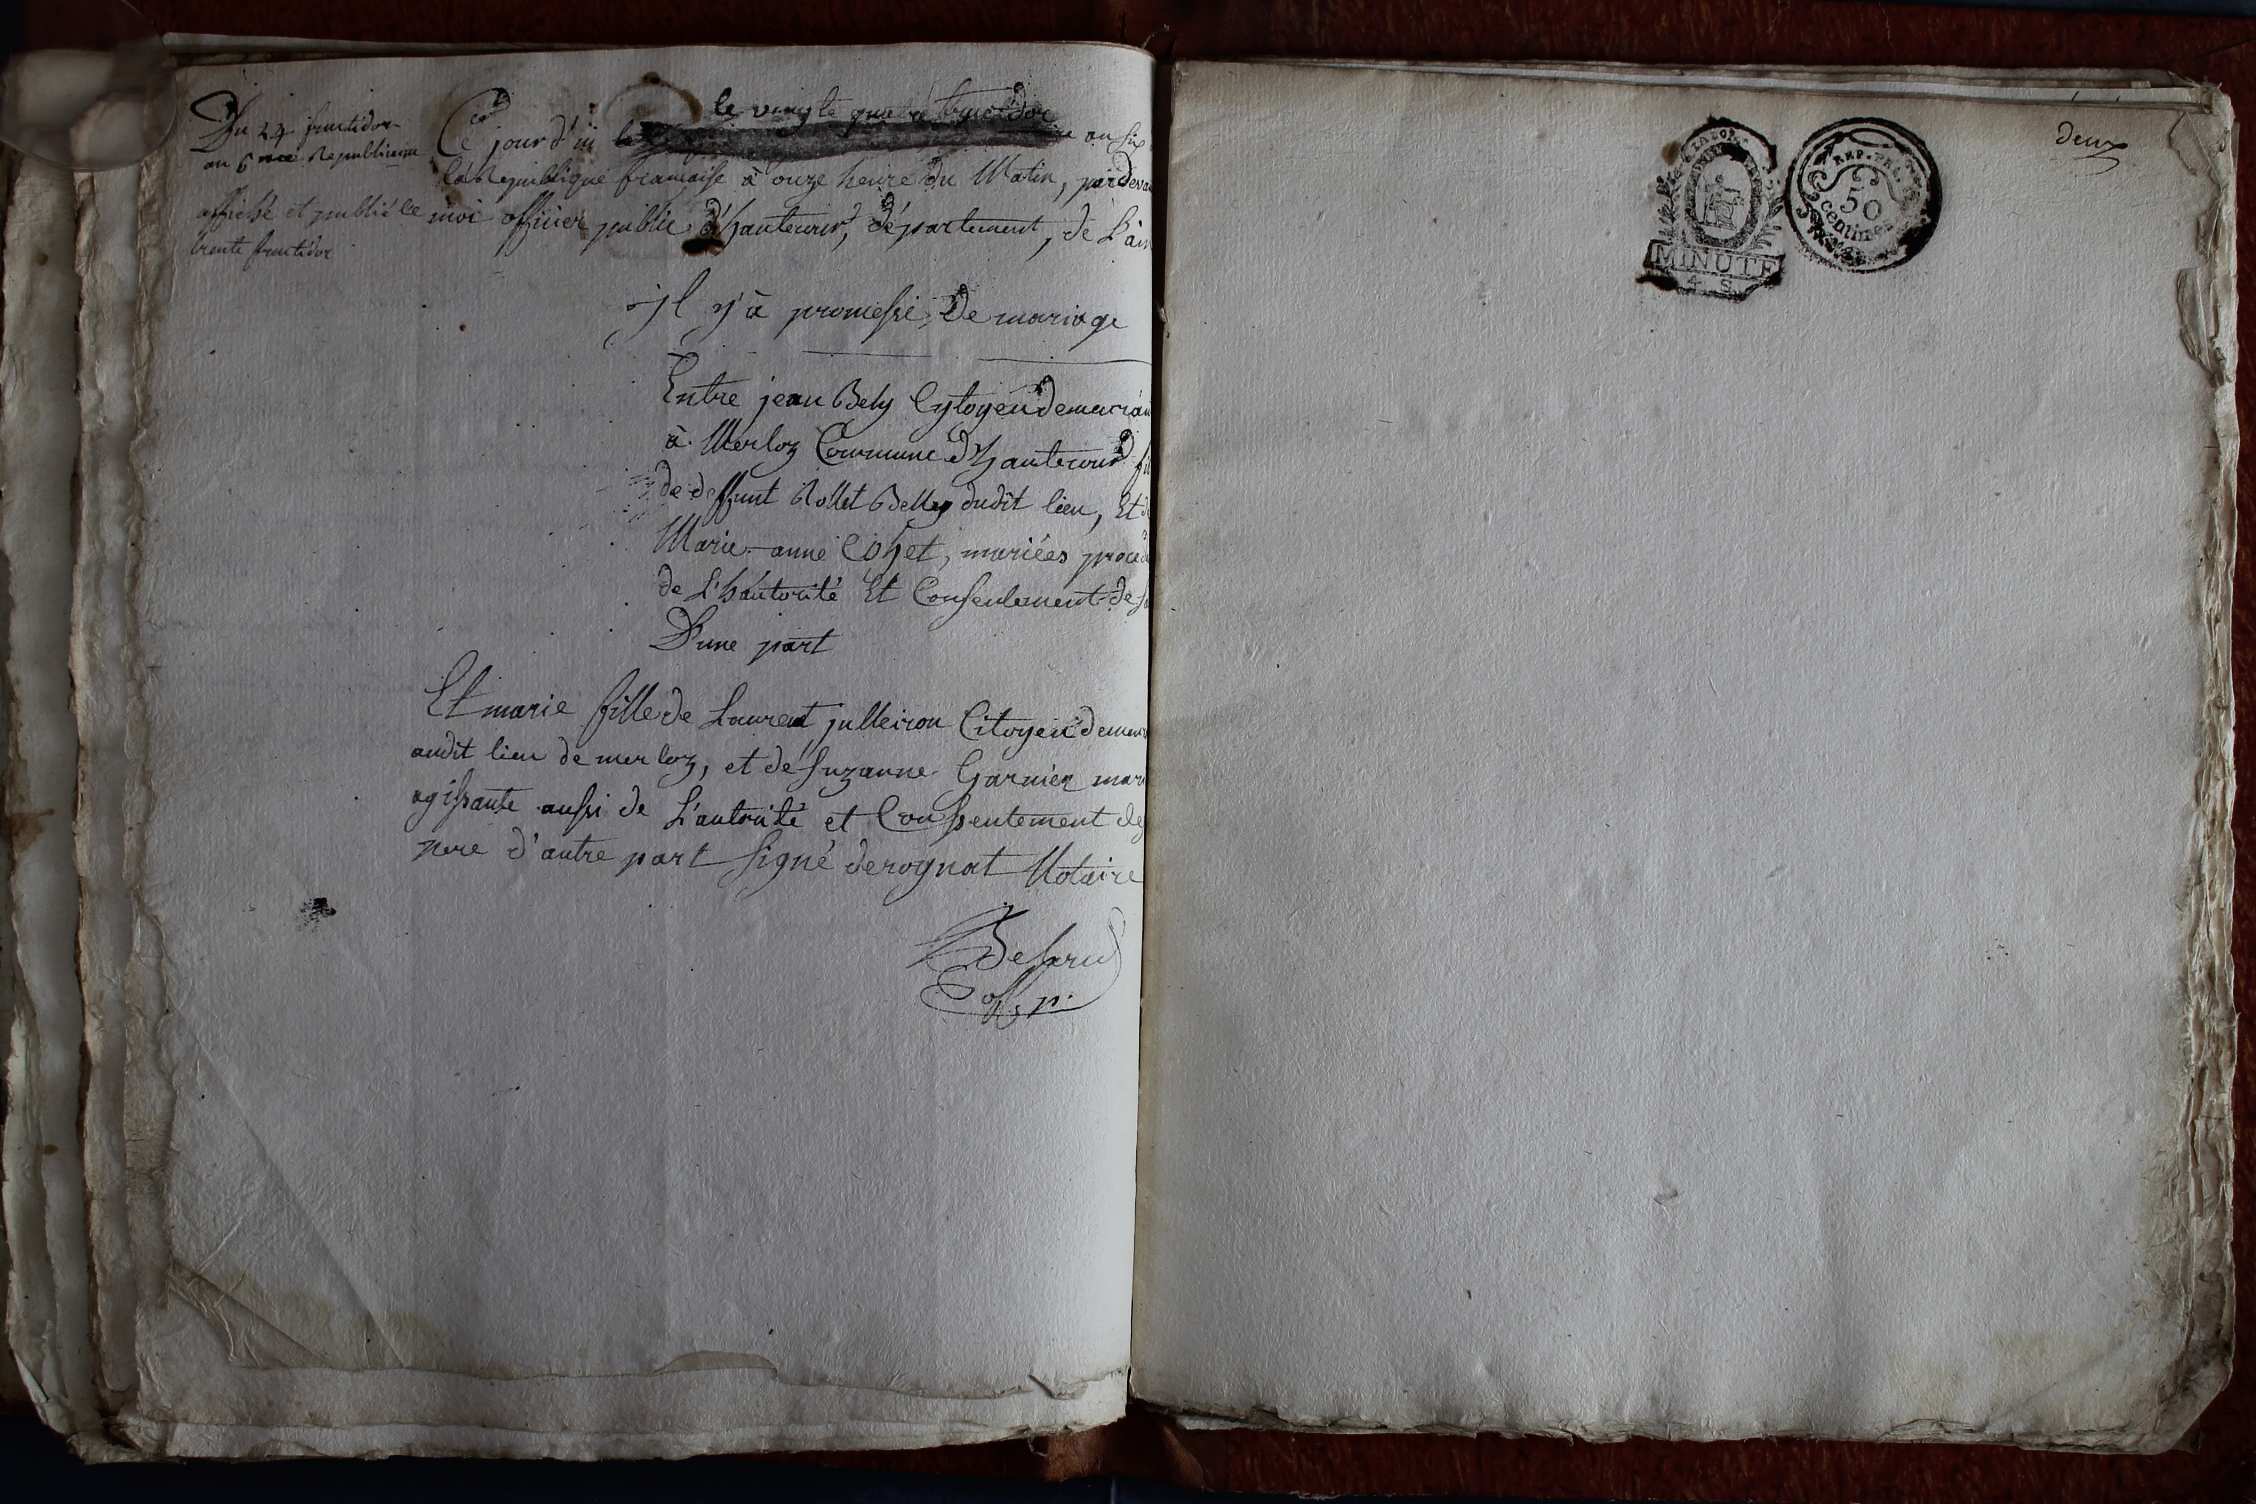 Du 24 fructidor
an 6me Republicaine
affiché et publié le
trente fructidor
Ce jourd'ui le vingte quatre fructidor an six
la Republique francaise à onze heure du Matin, pardeva
moi officier public d'hautecour, département, de L'ain
il y'à promesse De mariage
Entre jean Bely Cytoyen demeuran
à Merloz Commune d'hautecour fil
de deffunt Rollet Belley dudit lieu, Et de
Marie-anne Cohet, mariées proced
de L'hautorité Et Consentement de sa
D'une part
Et marie fille de Laurent julleiron Citoyen demeur
audit lieu de merloz, et de Suzanne Garnier mari
agissante aussi de L'autorité et Consentement de
pere d'autre part signé derognat Notaire
off. p.
deux
REP. FRA.
50
centimes
MINUTE
4 S